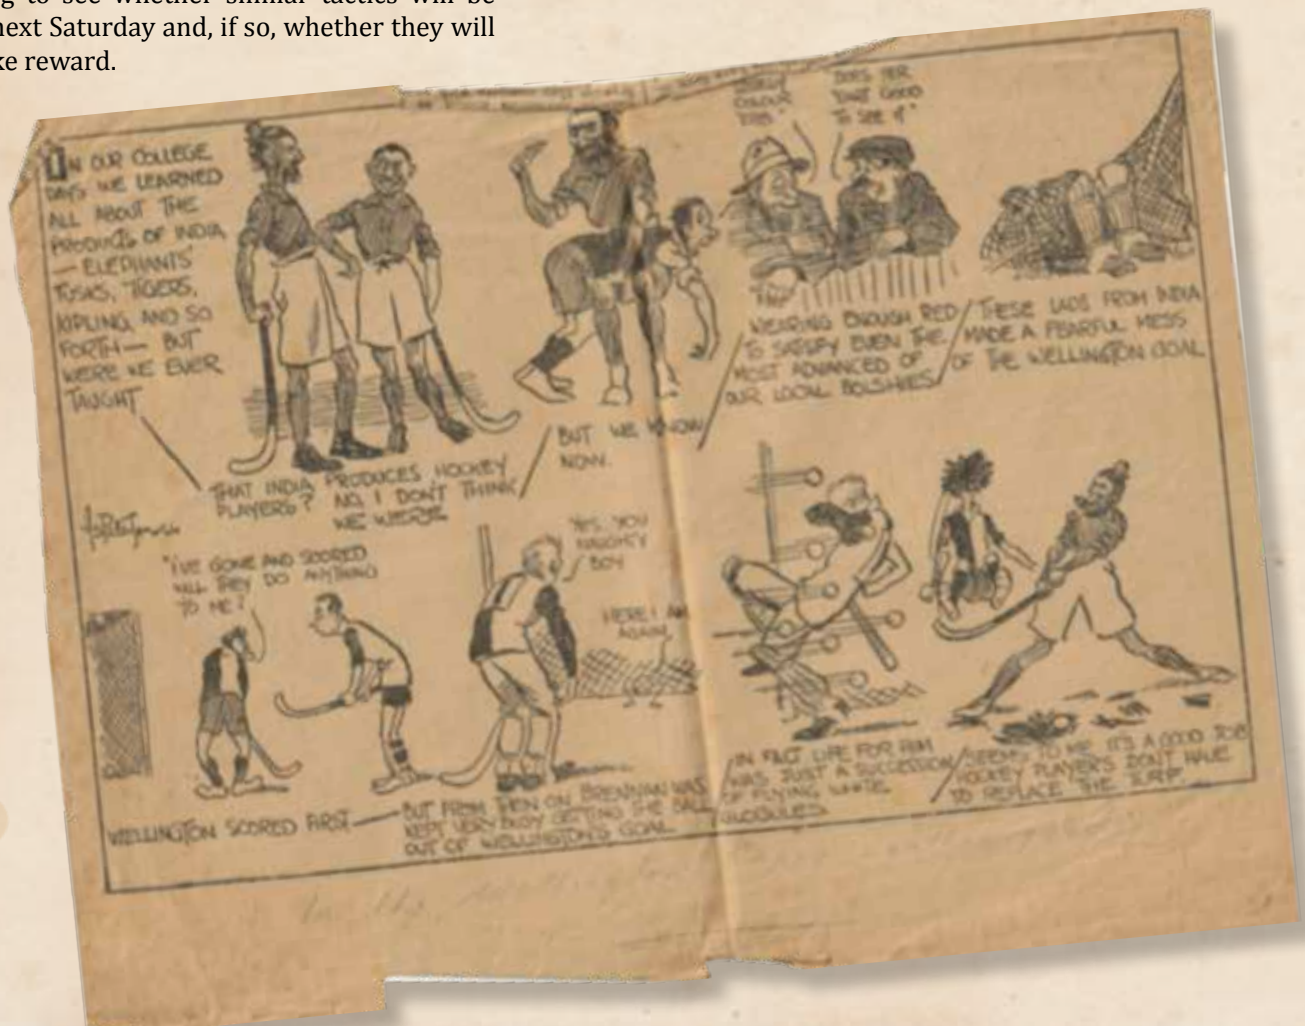 g to see whether similar tactics will be
next Saturday and, if so, whether they will
ke reward.
IN OUR COLLEGE
DAYS WE LEARNED
ALL ABOUT THE
PRODUCTS OF INDIA
— ELEPHANTS'
TUSKS, TIGERS,
KIPLING, AND SO
FORTH — BUT
WERE WE EVER
TAUGHT
THAT INDIA PRODUCES HOCKEY
PLAYERS? NO, I DON'T THINK
WE WERE
BUT WE KNOW
NOW.
COLOUR
THAT GOOD
TO SEE IT"
WEARING ENOUGH RED
TO SATISFY EVEN THE
MOST ADVANCED OF
OUR LOCAL BOLSHIES
THESE LADS FROM INDIA
MADE A FEARFUL MESS
OF THE WELLINGTON GOAL
"I'VE GONE AND SCORED
WILL THEY DO ANYTHING
TO ME?
YES, YOU
NAUGHTY
BOY
HERE I AM
AGAIN
WELLINGTON SCORED FIRST —
BUT FROM THEN ON BRENNAN WAS
KEPT VERY BUSY GETTING THE BALL
OUT OF WELLINGTON'S GOAL
IN FACT LIFE FOR HIM
WAS JUST A SUCCESSION
OF FLYING WHITE
GLOBULES
SEEMS TO ME IT'S A GOOD JOB
HOCKEY PLAYERS DON'T HAVE
TO REPLACE THE TURF